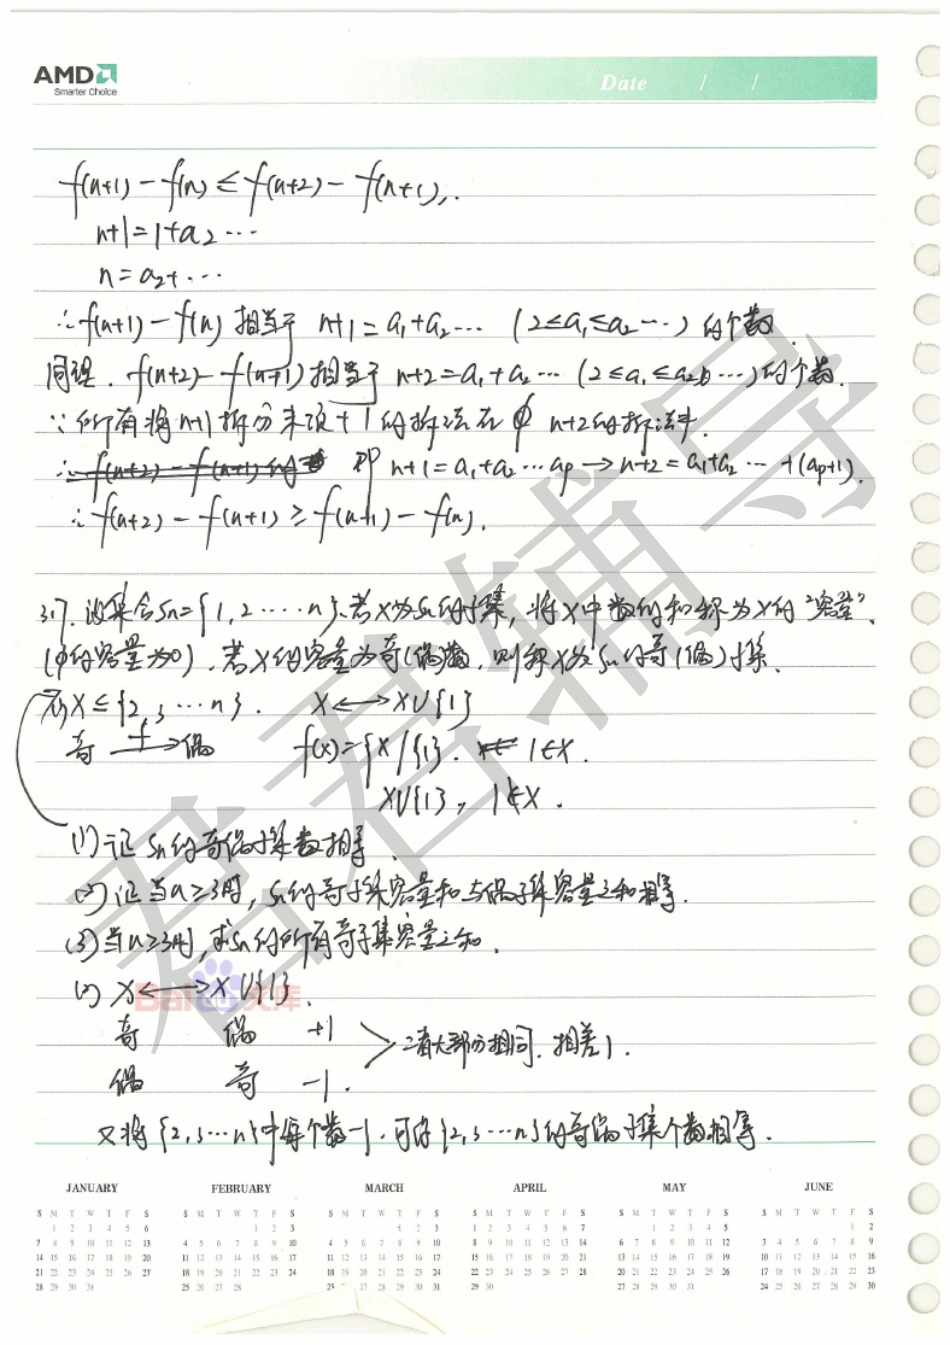 AMD
Smarter Choice
Date / /
f(n+1) - f(n) ≤ f(n+2) - f(n+1).
n+1=1+a2 ···
n=a2+ ···
∴ f(n+1) - f(n) 相当于 n+1=a1+a2··· (2≤a1≤a2···) 的个数.
同理. f(n+2) - f(n+1) 相当于 n+2=a1+a2··· (2≤a1≤a2···) 的个数.
∵ 所有将 n+1 拆分末项+1的拆法在 n+2的拆法中.
∴ f(n+2) - f(n+1) 即 n+1=a1+a2···ap → n+2=a1+a2···+(ap+1).
∴ f(n+2) - f(n+1) ≥ f(n+1) - f(n).
317. 设集合Sn={1,2·····n}.若X为Sn的子集, 将X中数的和称为X的"容量".
(φ的容量为0). 若X的容量为奇(偶)数, 则称X为Sn的奇(偶)子集.
X≤{2,3···n}. X⟷X∪{1}
奇 f→ 偶 f(x)={X/{1}. 1∈X.
X∪{1}, 1∉X.
(1) 证 Sn的奇偶子集数相等.
(2) 证当n≥3时, Sn的奇子集容量和与偶子集容量之和相等.
(3) 当n≥3时, 求Sn的所有奇子集容量之和.
(2) X⟷X∪{1}.
Bai 文库
奇 偶 +1
偶 奇 -1.
二者大部分相同. 相差1.
又将{2,3···n}中每个数-1. 可得{2,3···n}的奇偶子集个数相等.
君君辅导
JANUARY FEBRUARY MARCH APRIL MAY JUNE